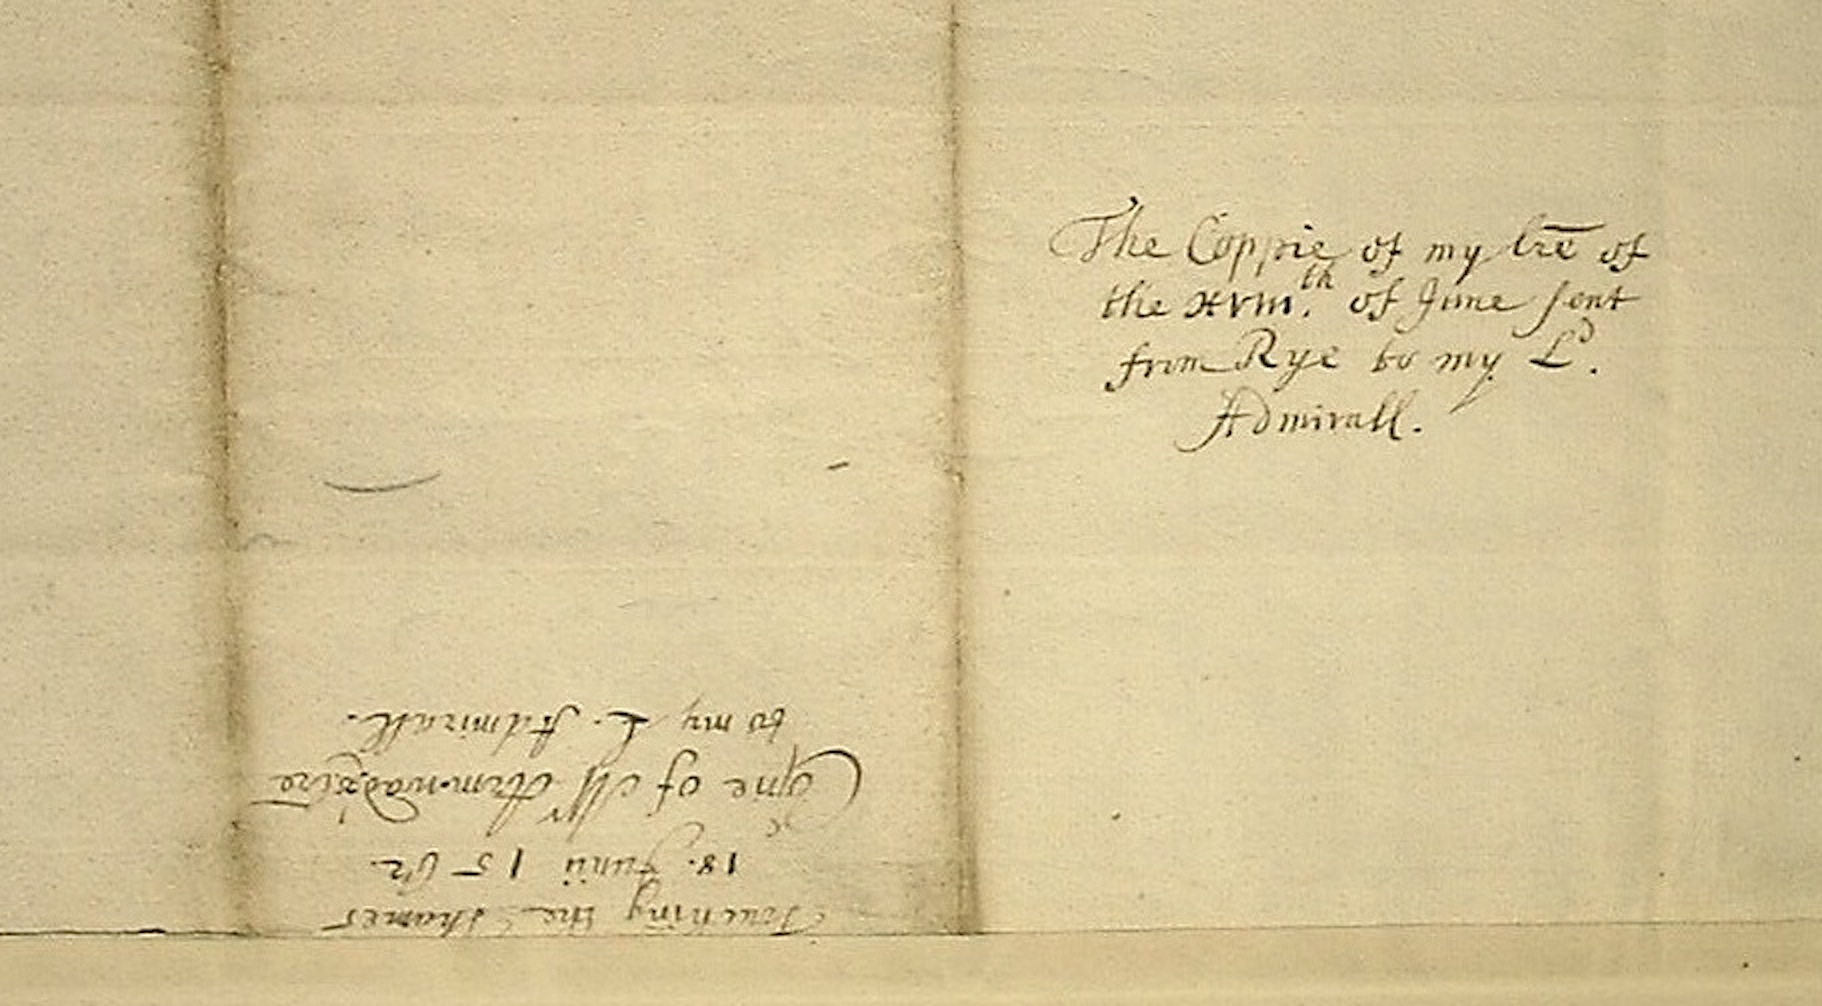 The Coppie of my lr̄e of
the xviii.th of June sent
from Rye to my Ld.
Admirall.
Touching the Thames
18. Junii 15
Copie of Mr lr̄e
to my L. Admirall.